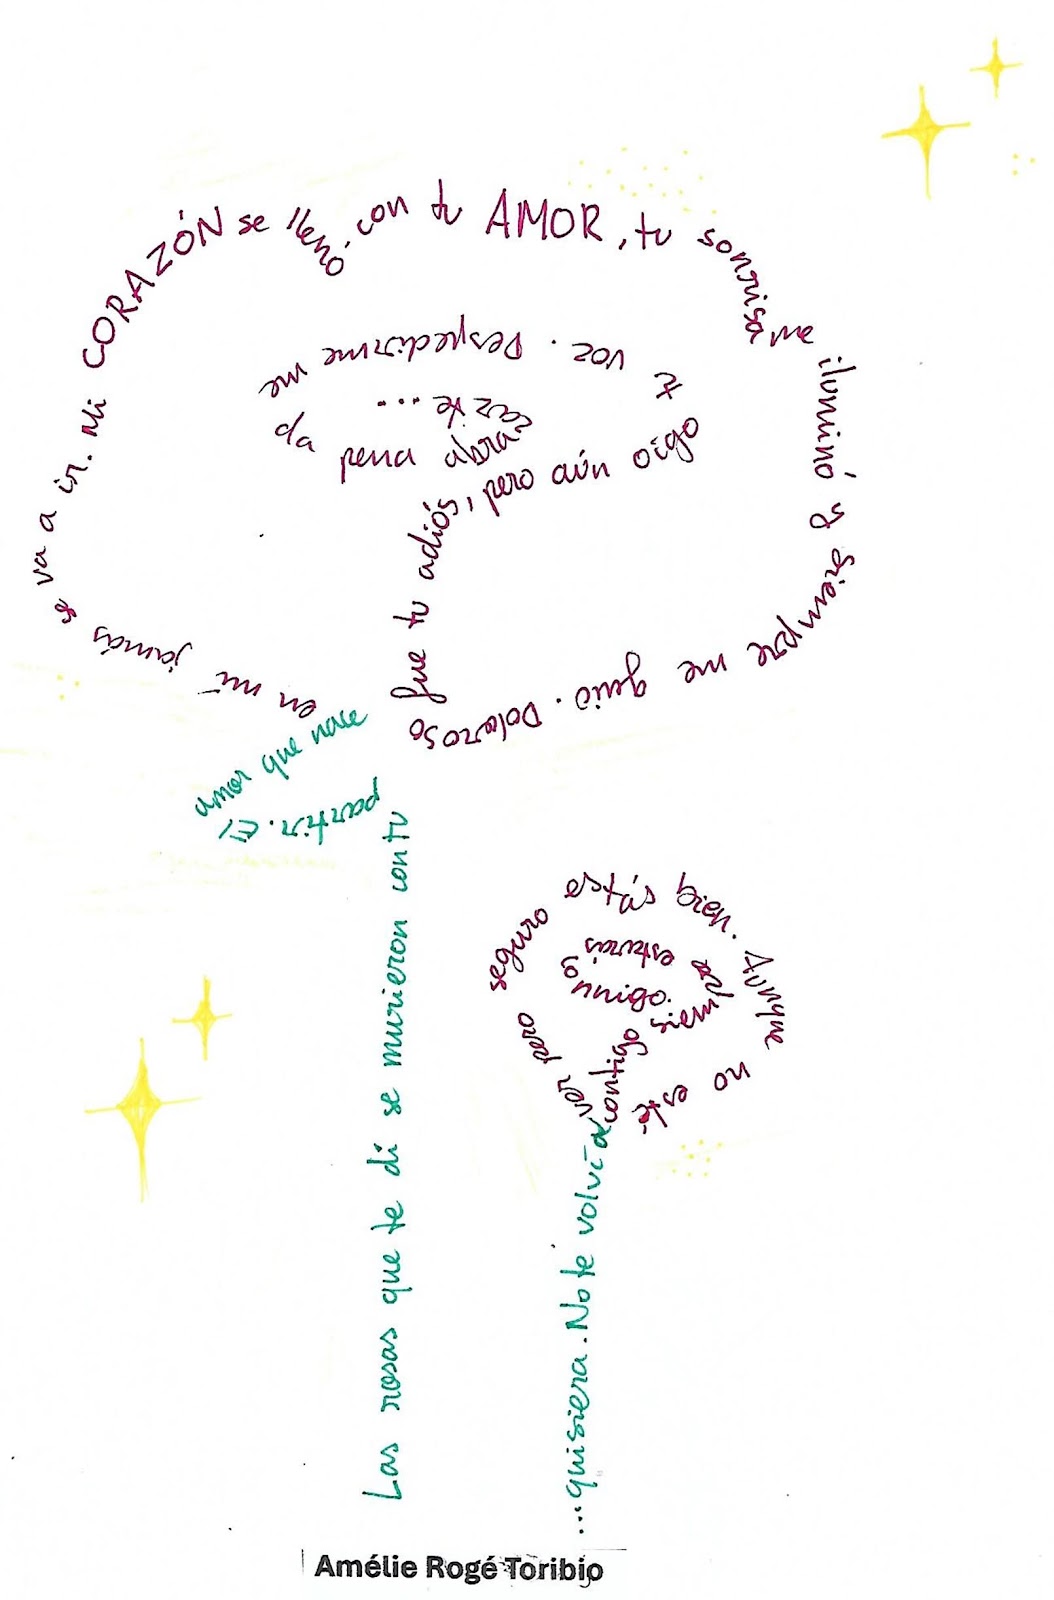 Las rosas que te di se murieron con tu
partir. El
amor que nace
en mí jamás se va a ir. Mi CORAZÓN se llenó con tu AMOR, tu sonrisa me iluminó y siempre me guió. Doloroso
fue tu adiós, pero aún oigo
tu voz. Despedirme me
da pena abrazarte...
...quisiera. No te volví a
ver pero seguro estás bien. Aunque no esté
contigo siempre estarás conmigo.
Amélie Rogé Toribio